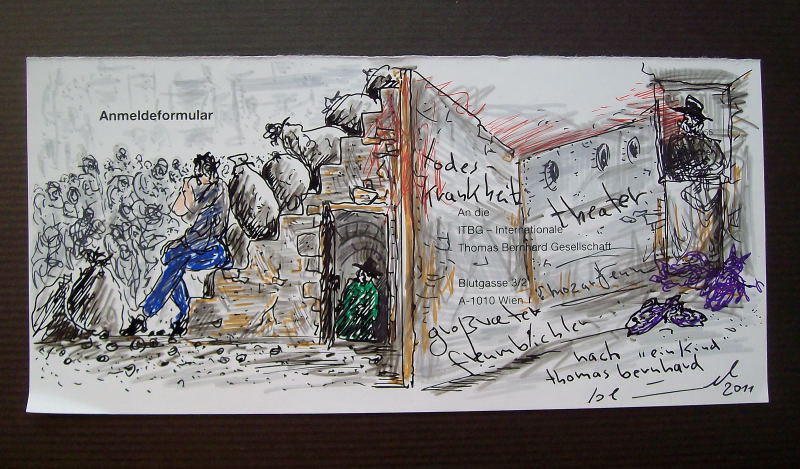 Anmeldeformular
todes-
krankheit
theater
An die
ITBG – Internationale
Thomas Bernhard Gesellschaft
Blutgasse 3/2
A-1010 Wien
großvater
nach "ein Kind"
thomas bernhard
2011